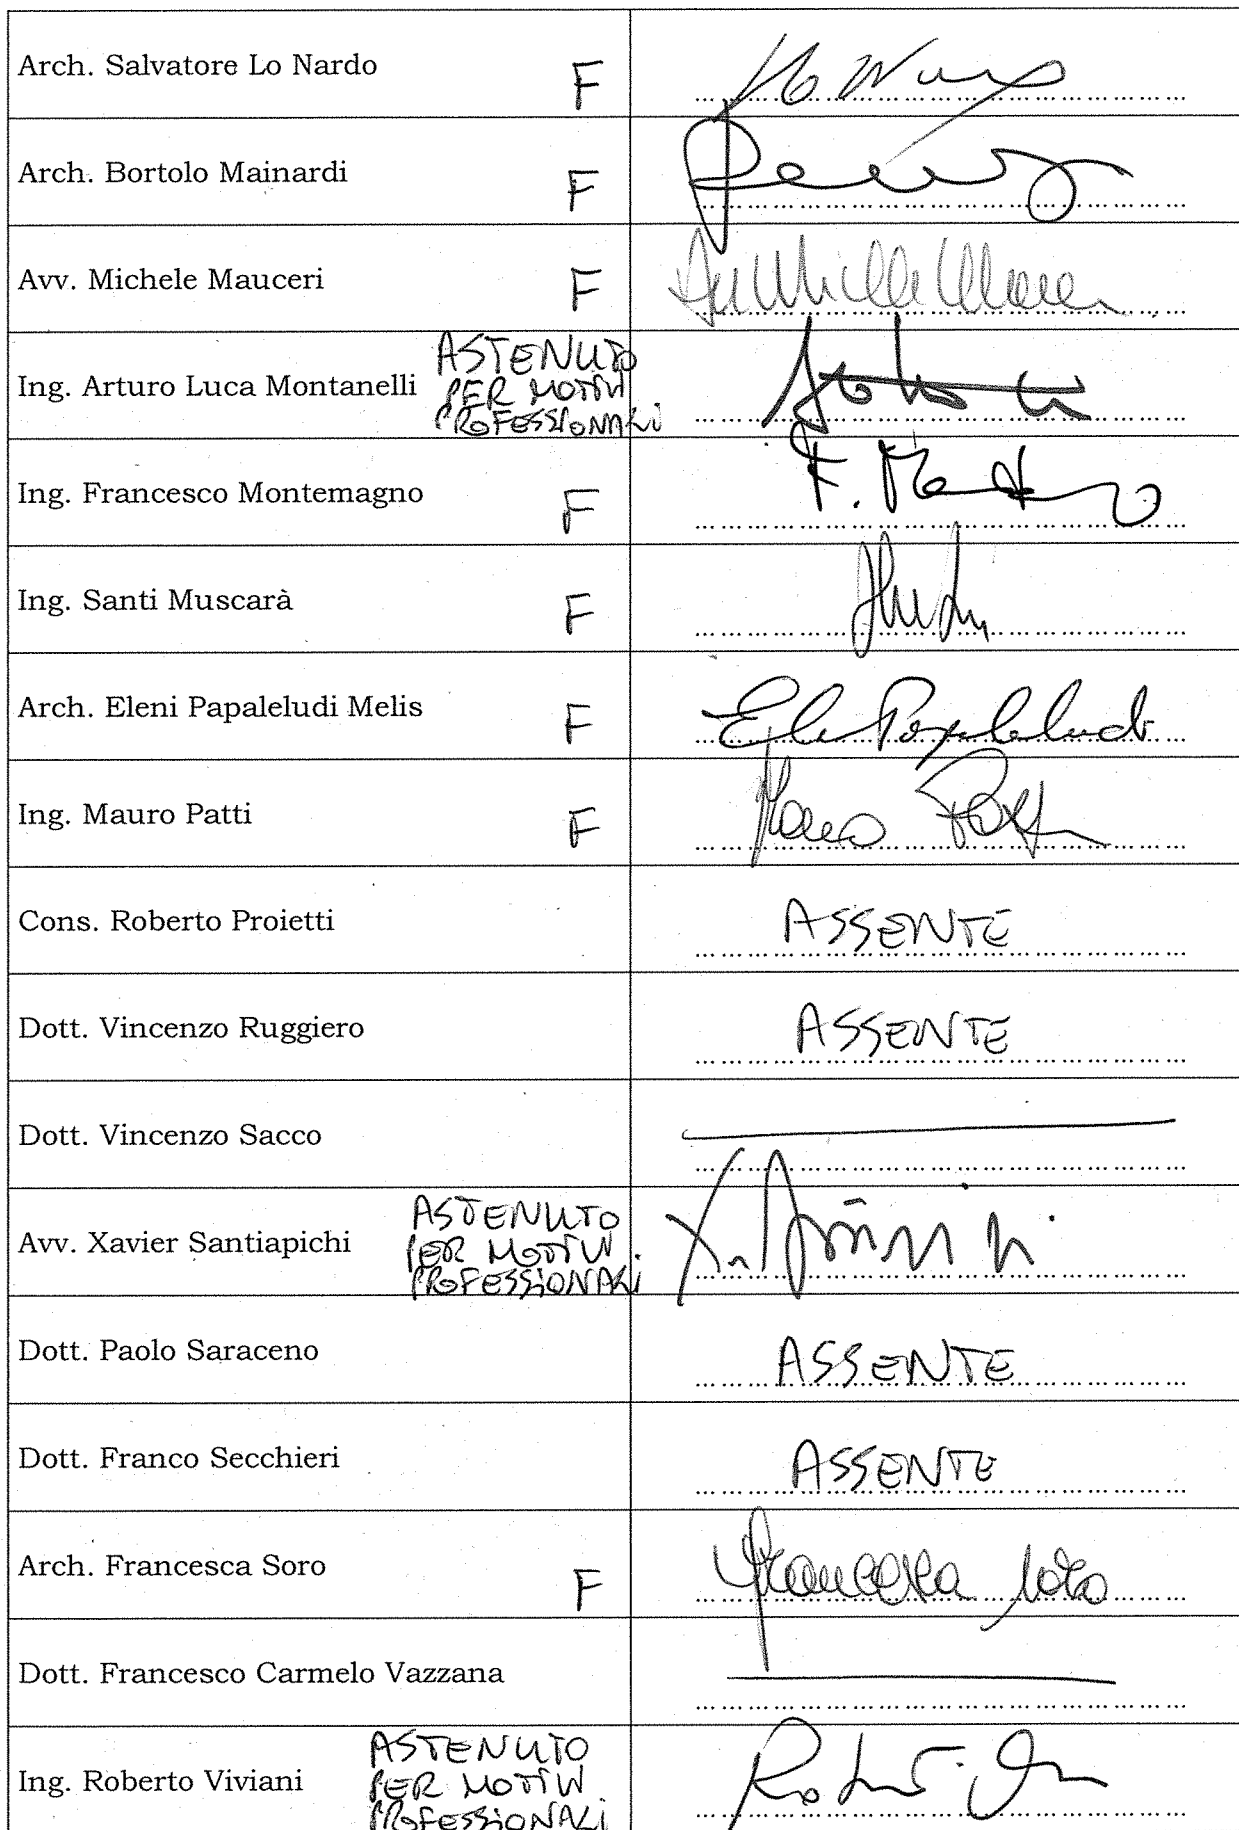 Arch. Salvatore Lo Nardo F
Arch. Bortolo Mainardi F
Avv. Michele Mauceri F
ASTENUTO
Ing. Arturo Luca Montanelli PER MOTIVI
PROFESSIONALI
Ing. Francesco Montemagno F
F. 
Ing. Santi Muscarà F
Arch. Eleni Papaleludi Melis F
Papaleludi
Ing. Mauro Patti F
Mauro Patti
Cons. Roberto Proietti ASSENTE
Dott. Vincenzo Ruggiero ASSENTE
Dott. Vincenzo Sacco
ASTENUTO
Avv. Xavier Santiapichi PER MOTIVI
PROFESSIONALI
Dott. Paolo Saraceno ASSENTE
Dott. Franco Secchieri ASSENTE
Arch. Francesca Soro F Francesca Soro
Dott. Francesco Carmelo Vazzana
ASTENUTO
Ing. Roberto Viviani PER MOTIVI
PROFESSIONALI